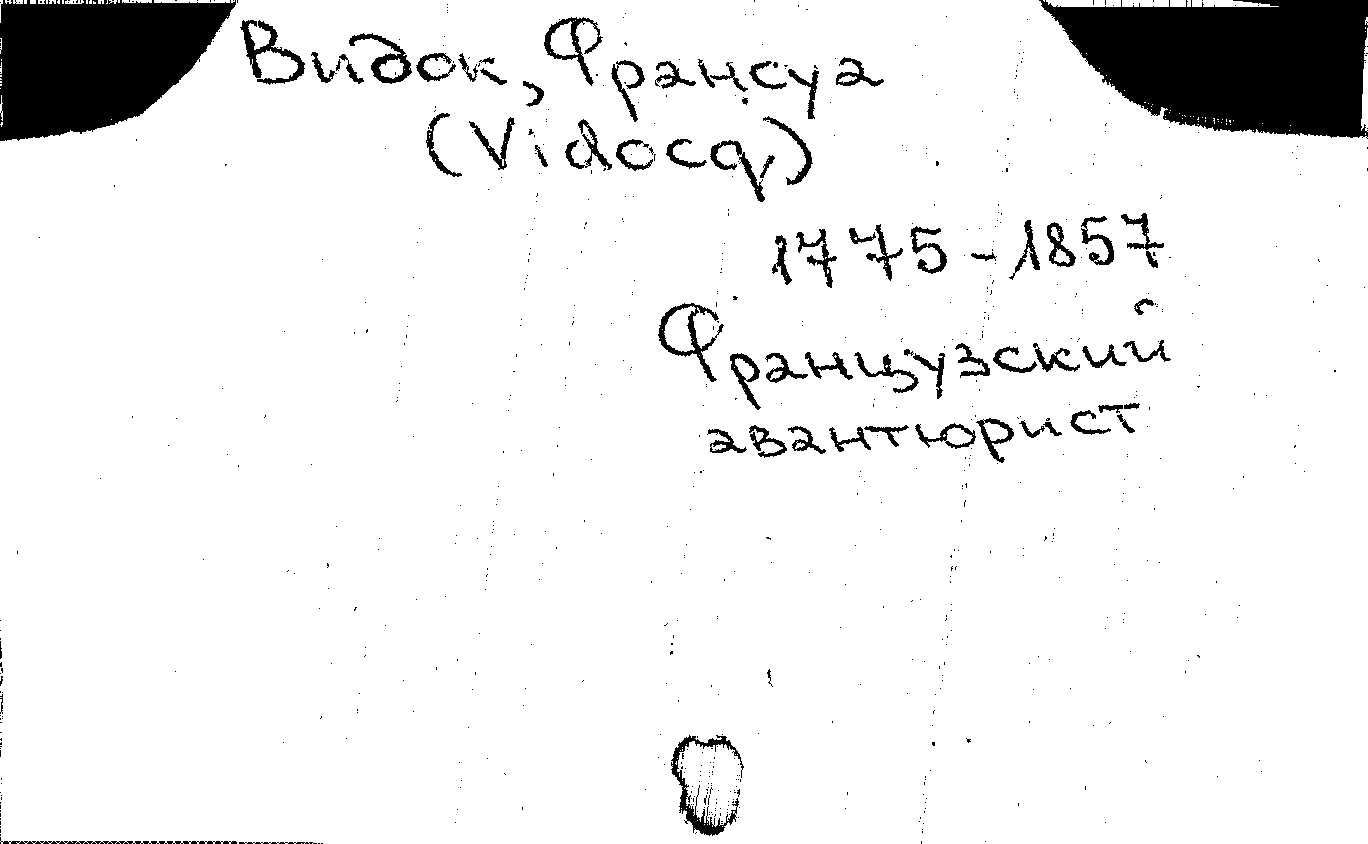 Видок, Франсуа
(Vidocq)
1775-1857
Французский
авантюрист